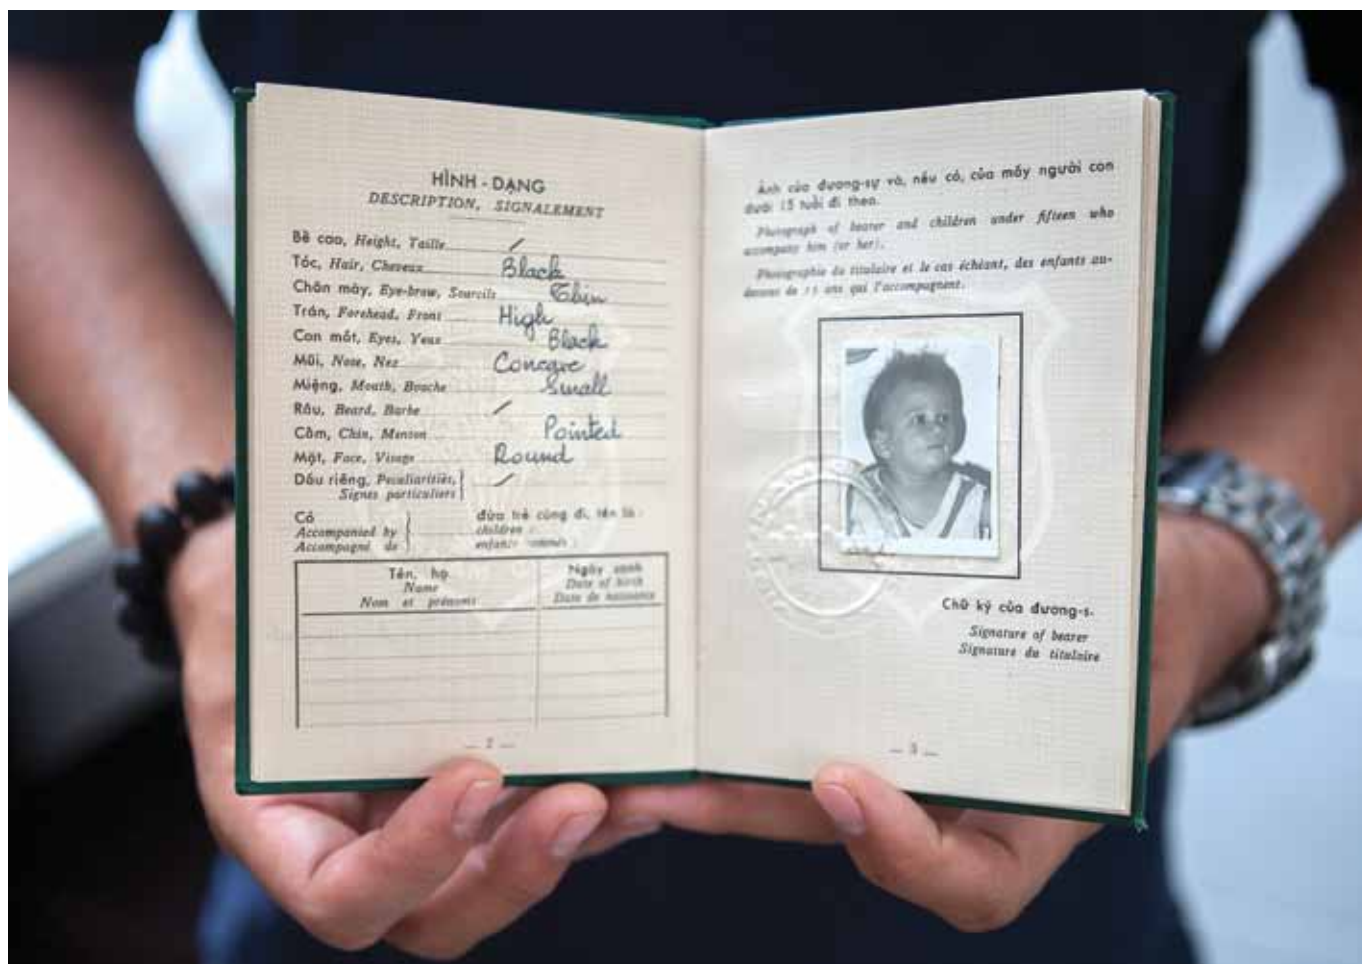 HÌNH - DẠNG
DESCRIPTION, SIGNALEMENT
Bề cao, Height, Taille /
Tóc, Hair, Cheveux Black
Chân mày, Eye-brow, Sourcils Thin
Trán, Forehead, Front High
Con mắt, Eyes, Yeux Black
Mũi, Nose, Nez Concave
Miệng, Mouth, Bouche Small
Râu, Beard, Barbe /
Cằm, Chin, Menton Pointed
Mặt, Face, Visage Round
Dấu riêng, Peculiarities, /
Signes particuliers
Có đứa trẻ cùng đi, tên là :
Accompanied by children :
Accompagné de enfants nommés :
Tên, họ Ngày sanh
Name Date of birth
Nom et prénoms Date de naissance
— 2 —
Ảnh của đương-sự và, nếu có, của mấy người con
dưới 15 tuổi đi theo.
Photograph of bearer and children under fifteen who
accompany him (or her).
Photographie du titulaire et le cas échéant, des enfants au-
dessous de 15 ans qui l'accompagnent.
Chữ ký của đương-s.
Signature of bearer
Signature du titulaire
— 3 —